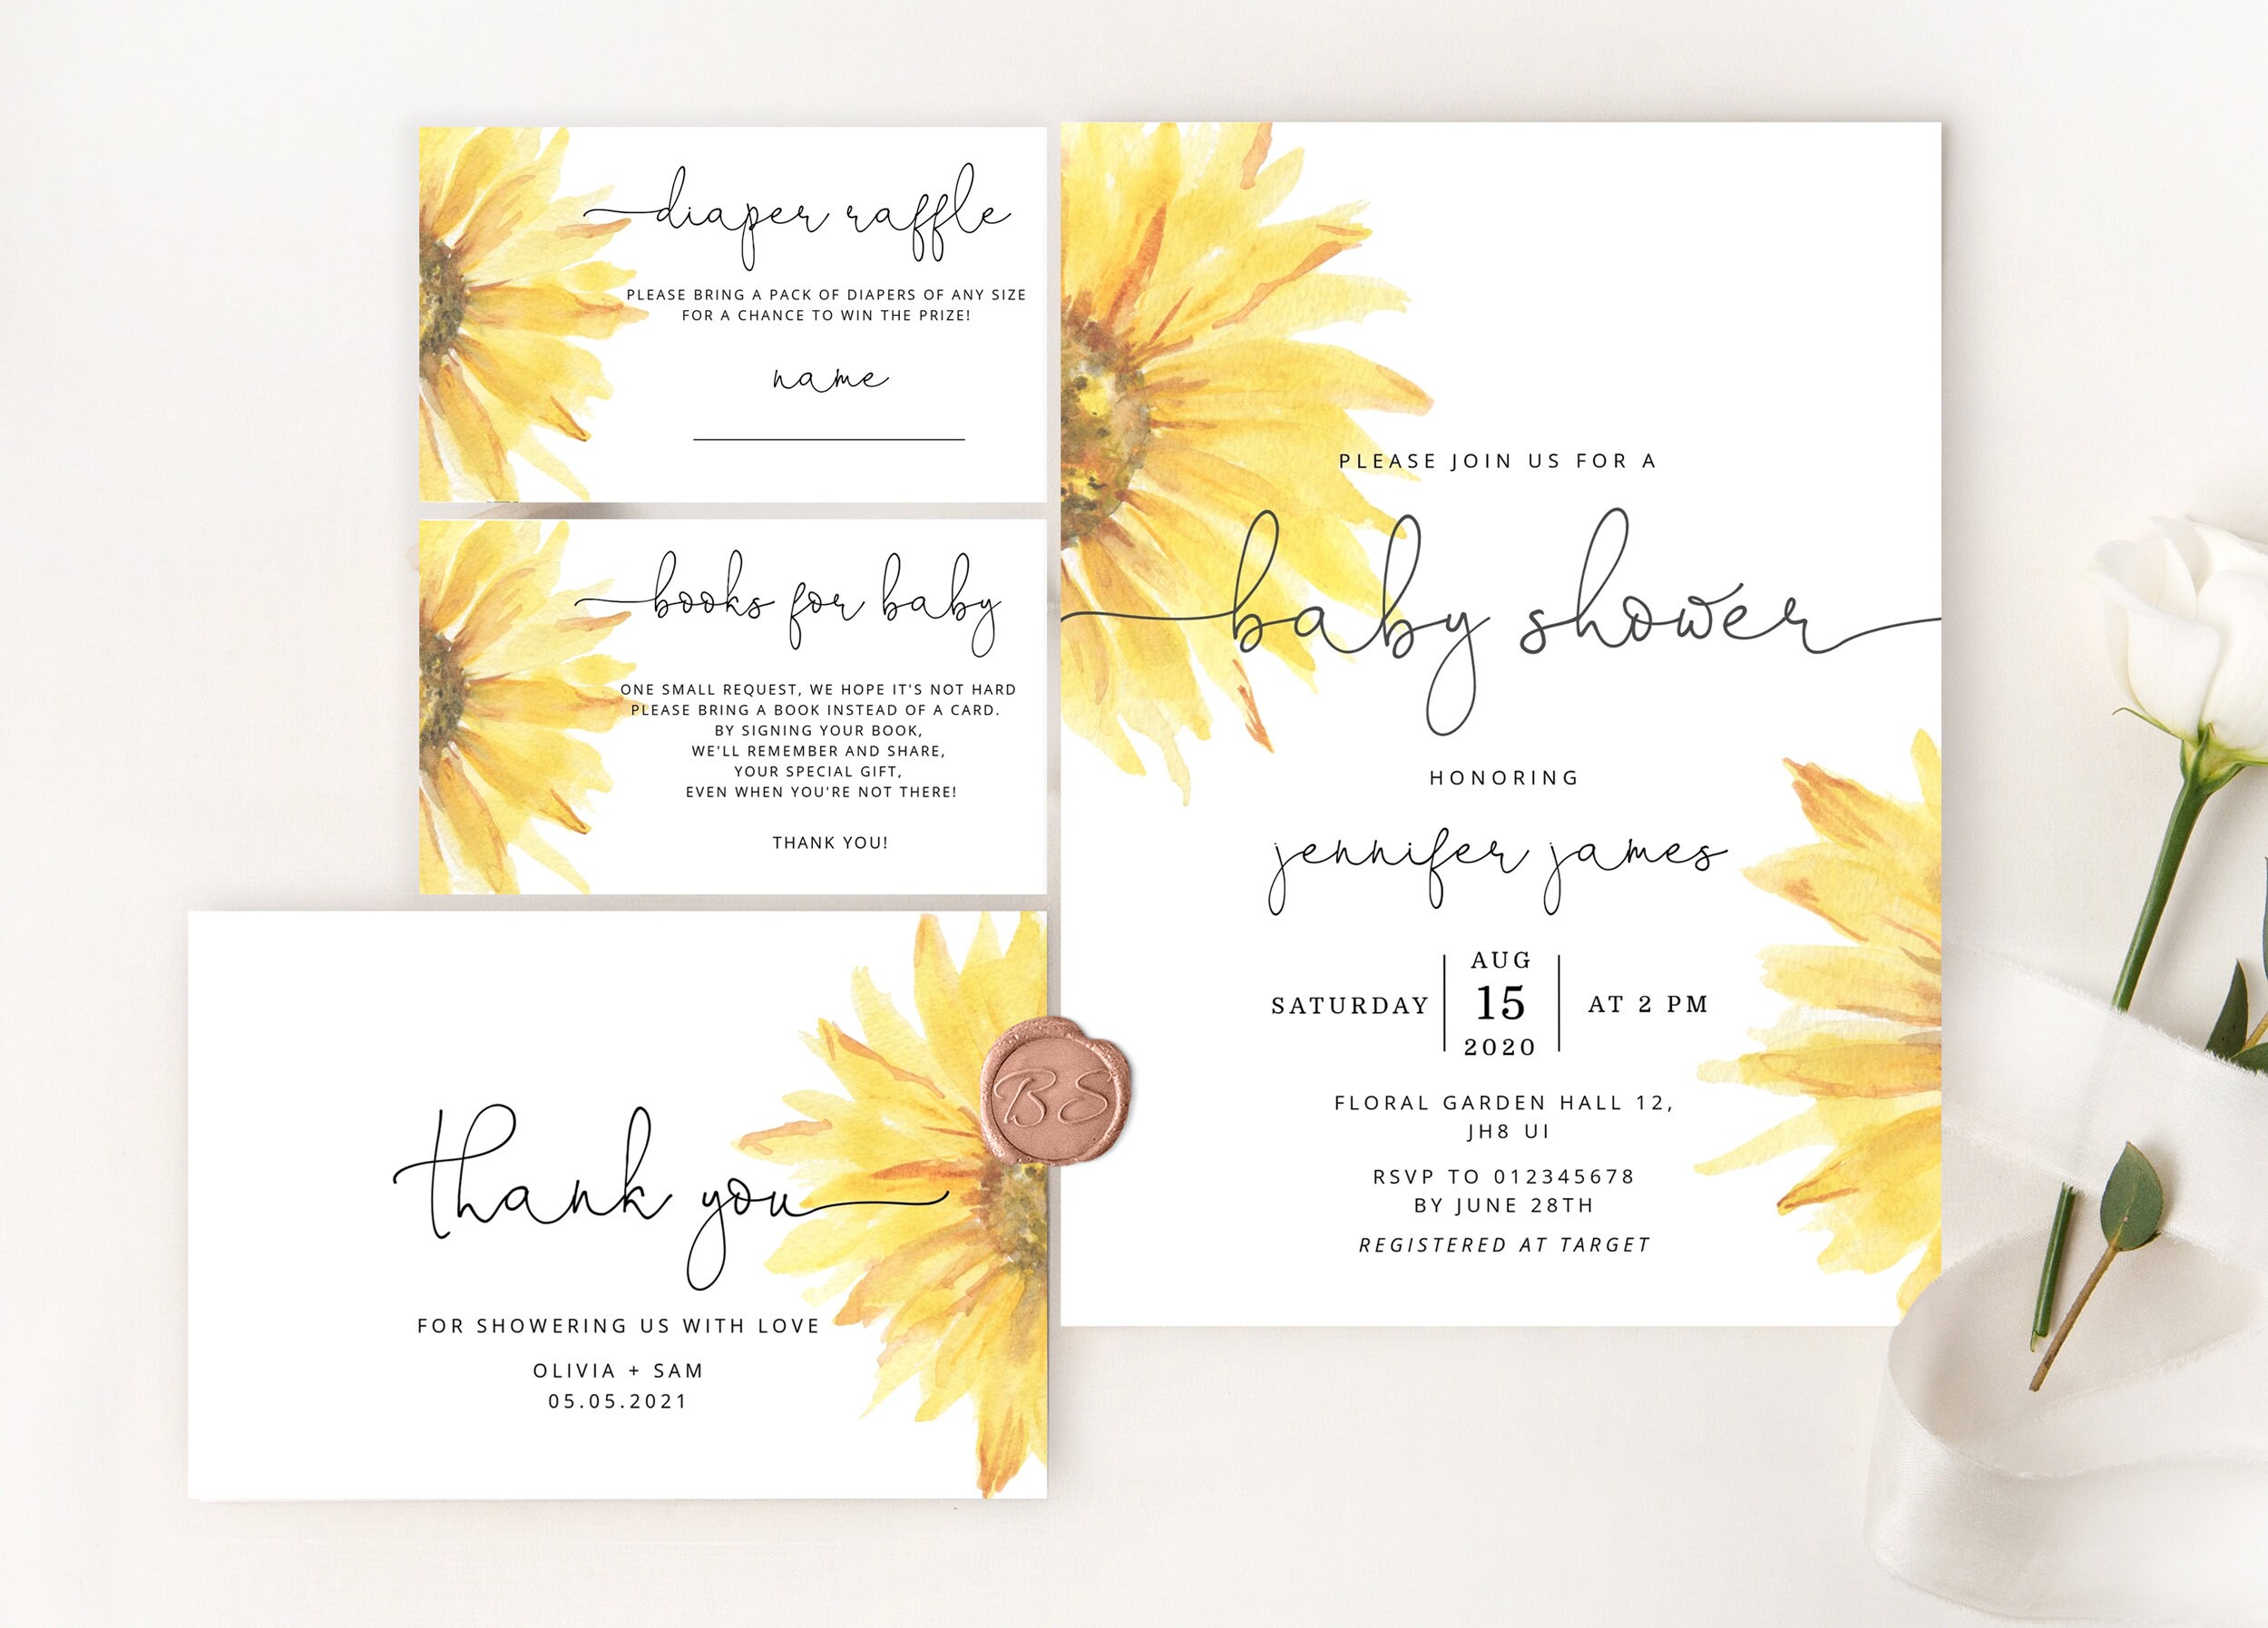 diaper raffle
PLEASE BRING A PACK OF DIAPERS OF ANY SIZE
FOR A CHANCE TO WIN THE PRIZE!
name
books for baby
ONE SMALL REQUEST, WE HOPE IT'S NOT HARD
PLEASE BRING A BOOK INSTEAD OF A CARD.
BY SIGNING YOUR BOOK,
WE'LL REMEMBER AND SHARE,
YOUR SPECIAL GIFT,
EVEN WHEN YOU'RE NOT THERE!
THANK YOU!
thank you
FOR SHOWERING US WITH LOVE
OLIVIA + SAM
05.05.2021
BS
PLEASE JOIN US FOR A
baby shower
HONORING
jennifer james
SATURDAY
AUG
15
2020
AT 2 PM
FLORAL GARDEN HALL 12,
JH8 UI
RSVP TO 012345678
BY JUNE 28TH
REGISTERED AT TARGET